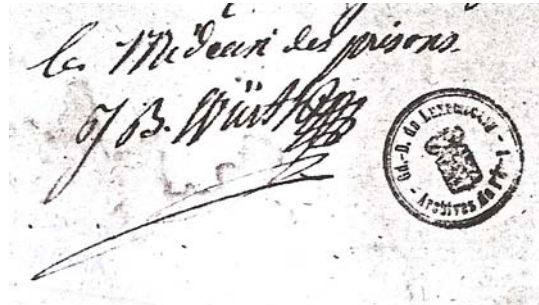 le Médecin des prisons.
J B. Würth
Gd.-D. de Luxembourg - Archives de l'